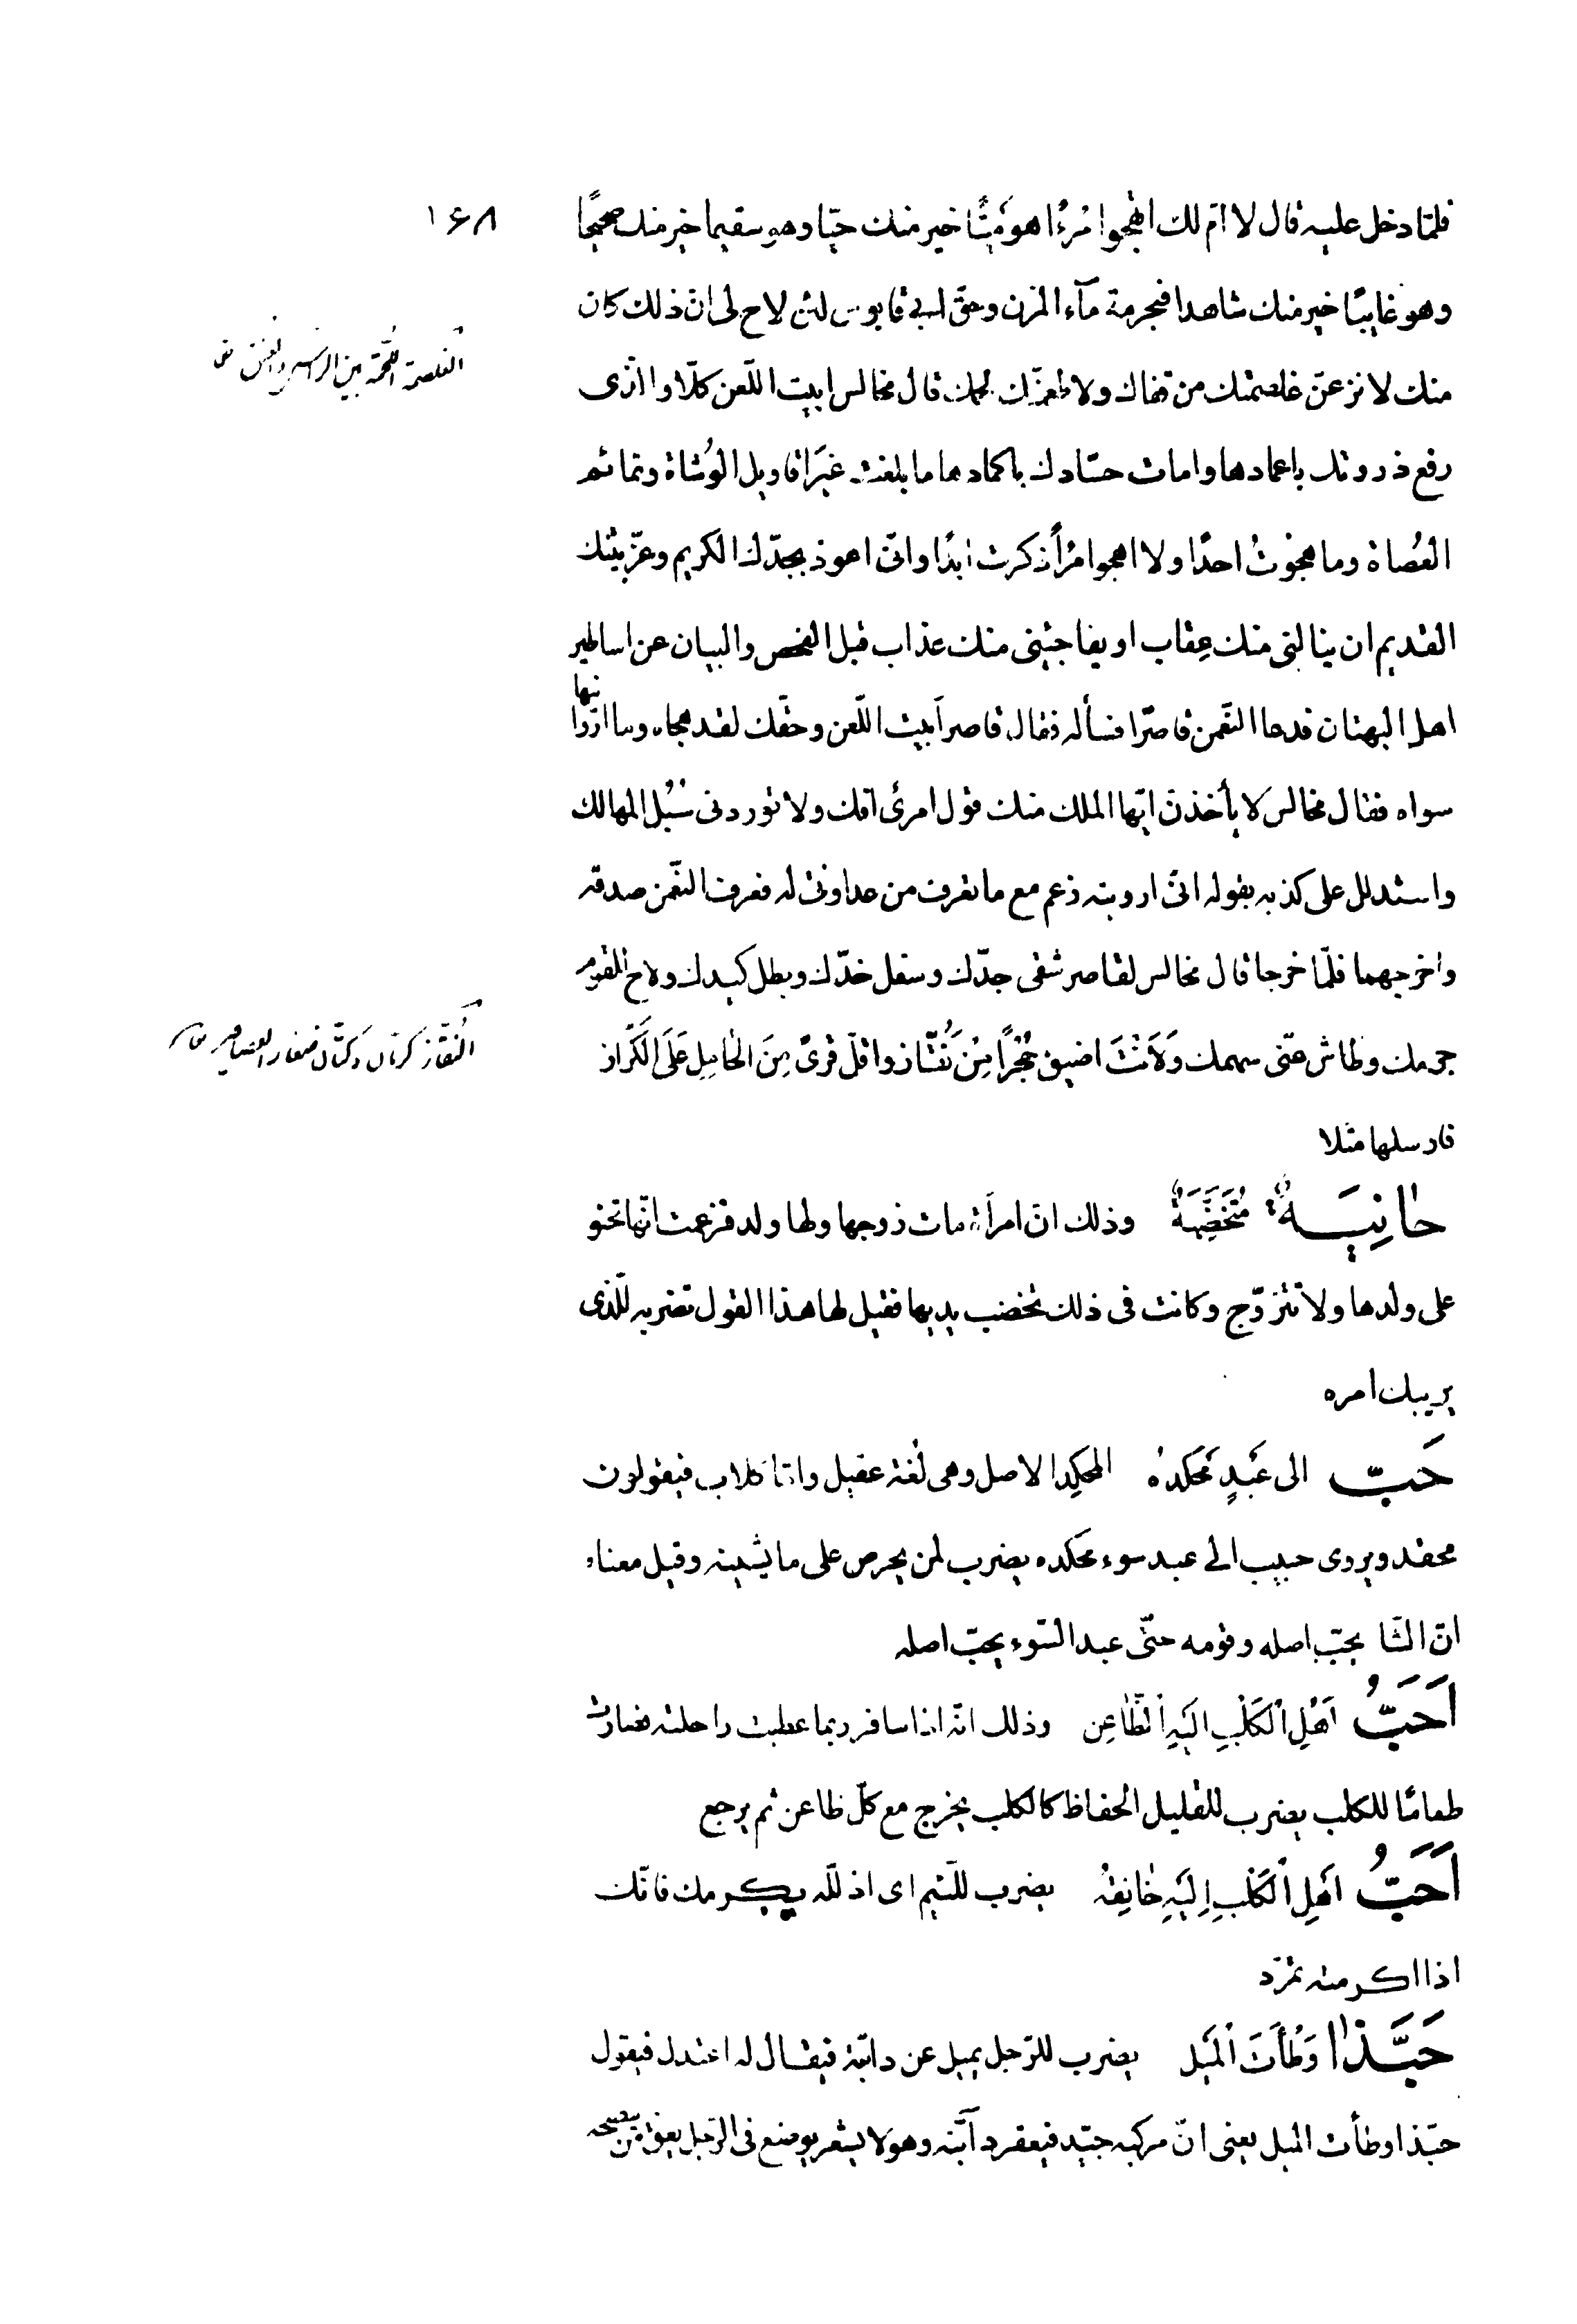 ١۶٨
فلمّا دخل عليه قال لا امّ لك اتهجوا مْرءًا هو مَيّتًا خير منك حيّا وهو سقيما خير منك صحيحًا
وهو غايبًا خير منك شاهدا فبحرمة مآء المزن وحقّ ابى قابوس لئن لاح لى انّ ذلك كان
الغلصمة اللَّحمة بين الراس والعنق
منك لانزعنّ غلصمتك من قفاك ولاطعمنّك لحمك قال مخالس ابيت اللّعن كلّا والّذى
رفع ذروتك باعمادها وامات حسّادك باكمادها ما بلغت غيَر اقاويل الوُشاة ونمائم
العُصاة وما هجوْتُ احدًا ولا اهجوا مْرأً ذكرت ابدًا وانّى اعوذ بجدّك الكريم وعزّ بيتك
القديم ان ينالنى منك عِقاب او يفاجئنى منك عذاب قبل الفحص والبيان عن اساطير
اهل البهتان فدعا النّعمن قاصرًا فسأله فقال قاصر اَبيت اللّعن وحقّك لقد هجاه وما ارّوانيها
سواه فقال مخالس لا يأخذنّ ايّها الملك منك قول امرئ آفك ولا توردنى سُبُل المهالك
واستدلل على كذبه بقوله انّى ارويته زعم مع ما تعرف من عداوتى له فعرف النعّمن صدقه
واخرجهما فلمّا خرجا قال مخالس لقاصر شقى جدّك وسفل خدّك وبطل كيدك ولاح للقوم
النُقّاز كرمّان وكتّان صغار العصافير
جرمك وطاش عنّى سهمك وَلَاَنْتَ اضيق جُحْرًا مِنْ نُقّاز واقلّ قرىً مِنَ الْحَامِلِ عَلَى الْكَرّاز
فارسلها مثلا
حٰانِيَةٌ مُتَخَضِّبَةٌ وذلك انّ امرأة مات زوجها ولها ولد فزعمت انّها تحنو
على ولدها ولا تتزوّج وكانت فى ذلك تخضب يديها فقيل لها هذا القول تضربه للّذى
يريبك امره
حَبّ الى عَبْدٍ مَحْكَدُه المحكِد الاصل وهى لُغة عقيل وامّا كلاب فيقولون
محقد ويروى حبيب الى عبد سوء محكده يضرب لمن يحرص على ما يشينه وقيل معناه
انّ الشا يحبّ اصله وقومه حتّى عبد السّوء يحبّ اصله
اَحَبُّ اَهْلِ الْكَلْبِ اِلَيْهِ الظّٰاعِن وذلك انّه اذا سافر ربما عطبت راحلته فصارت
طعامًا للكلب يضرب للقليل الحفاظ كالكلب يخرج مع كلّ ظاعن ثم يرجع
اَحَبُّ اَهْلِ الْكَلْبِ اِلَيْهِ خٰانِقُه يضرب للّئيم اى اذلّه يكرمك فانّك
اذا اكرمته تمرّد
حَبَّذٰا وَطْأَتَ الْمَيْل يضرب للرّجل يميل عن دابّته فيقال له اعتدل فيقول
حبّذا وطأت الميل يعنى انّ مركبه جيّد فيعقر دآبّته وهو لا يشعر يوضع فى الرّجل يعقّ من ينصحه